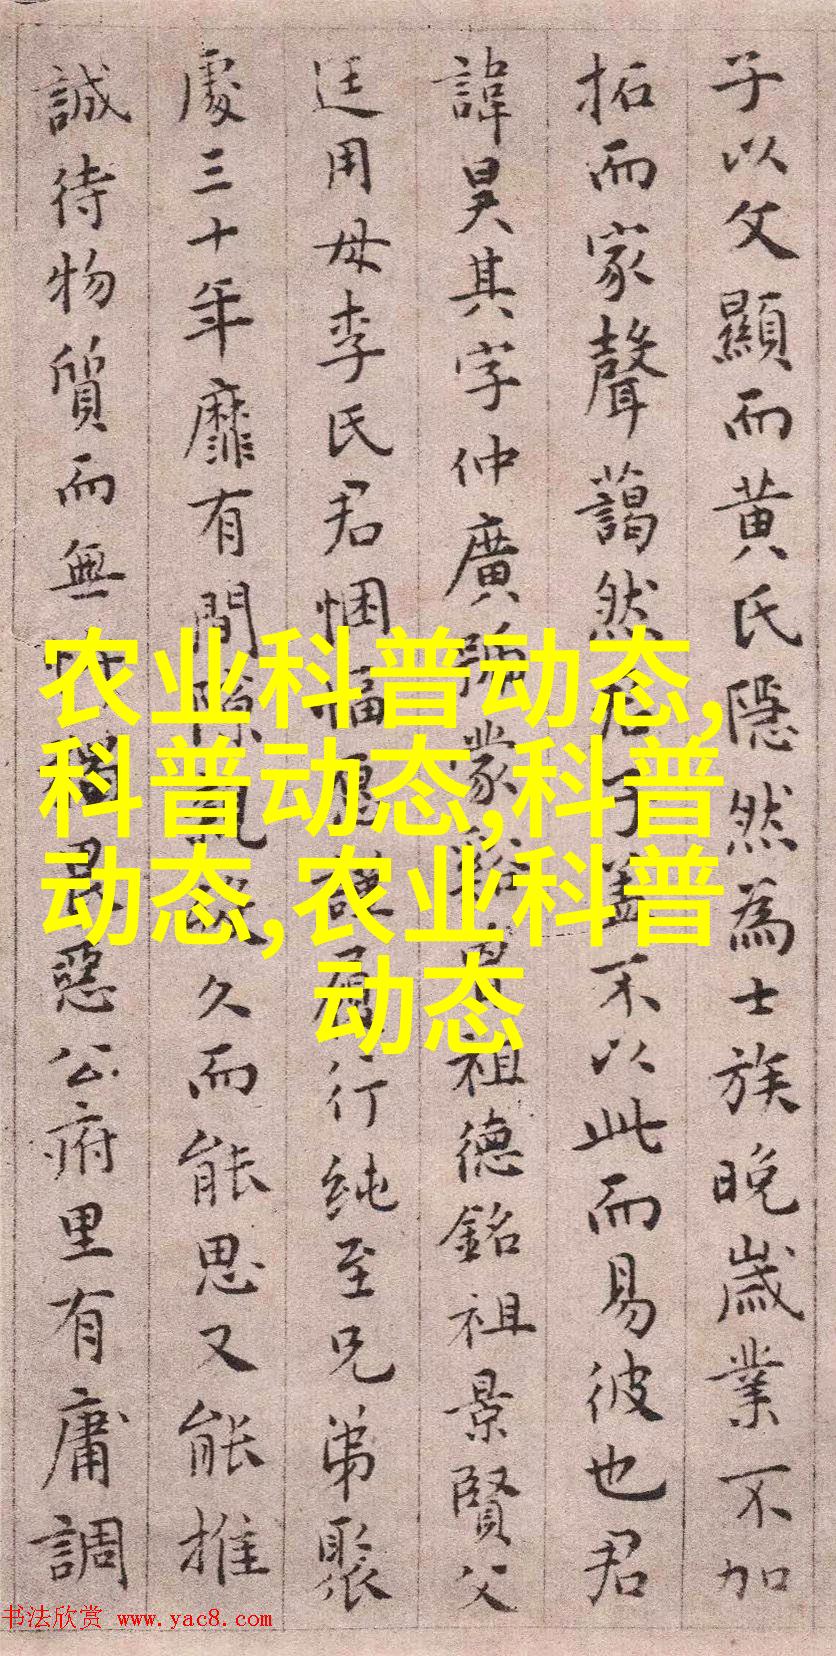 子以父顯而黄氏隠然為士族晚歲業不加
拓而家聲藹然君子蓋不以此而易彼也君
諱昊其字仲廣號蒙谿曽祖德銘祖景賢父
廷用母李氏君悃愊履謙行純至兄弟聚
處三十年靡有間隙久而能思又能推
誠待物質而無畏惡公府里有庸調
农业科普动态,
科普动态,科普
动态,农业科普
动态
书法欣赏 www.yac8.com